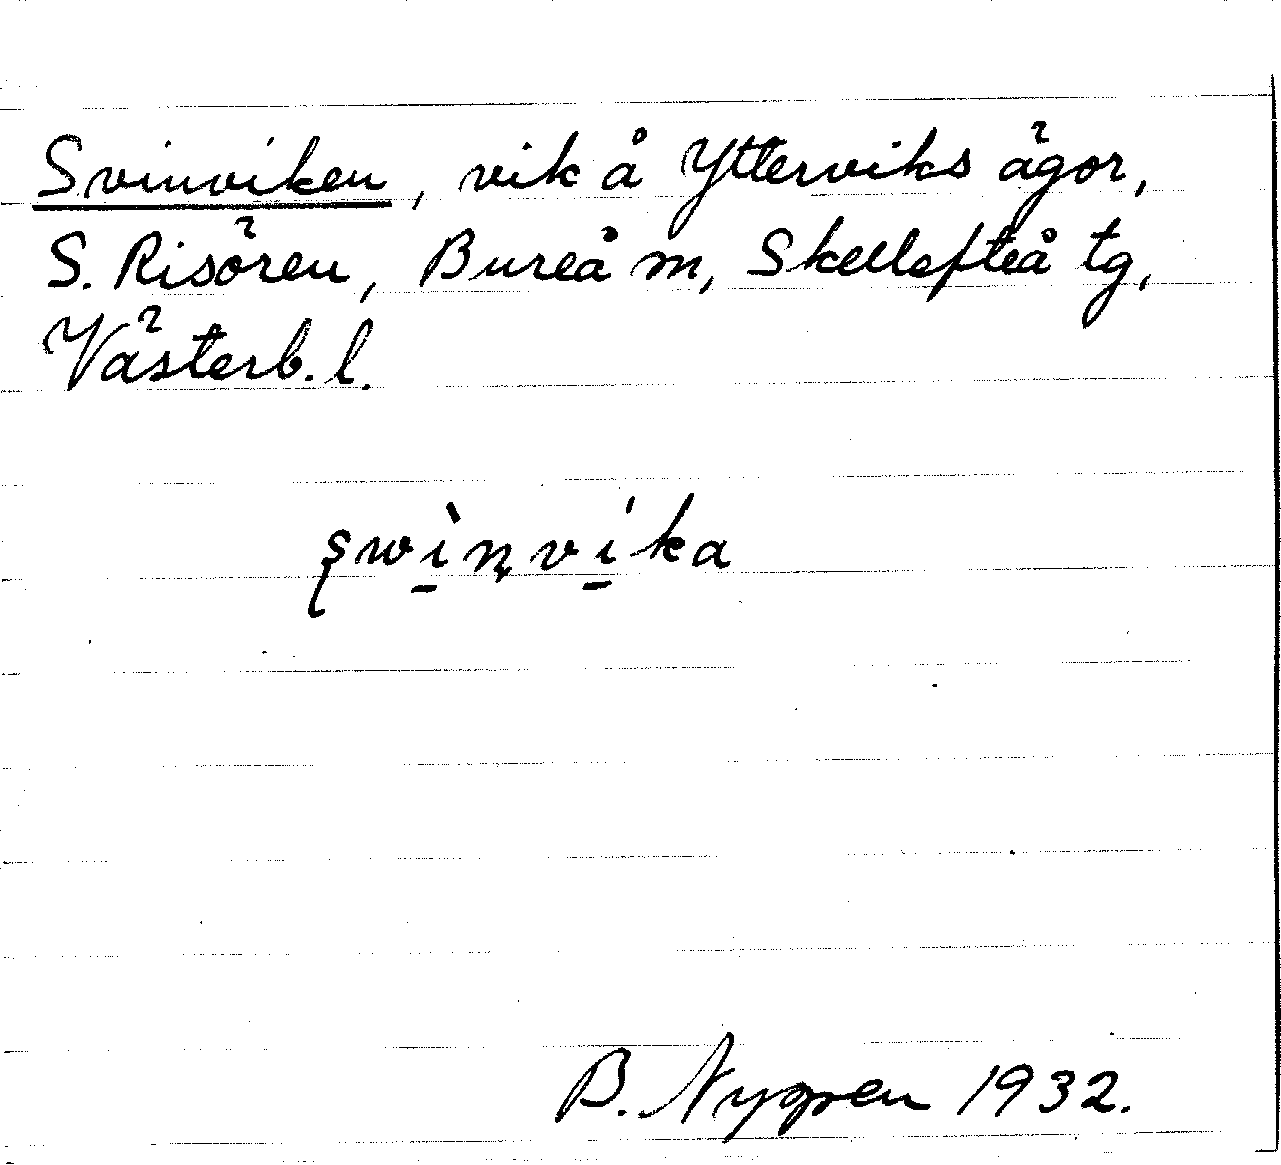 Svinviken, vik å Ytterviks ägor,
S. Risören, Bureå m, Skellefteå tg,
Västerb. l.
swì̱nví̱ka
B. Nygren 1932.